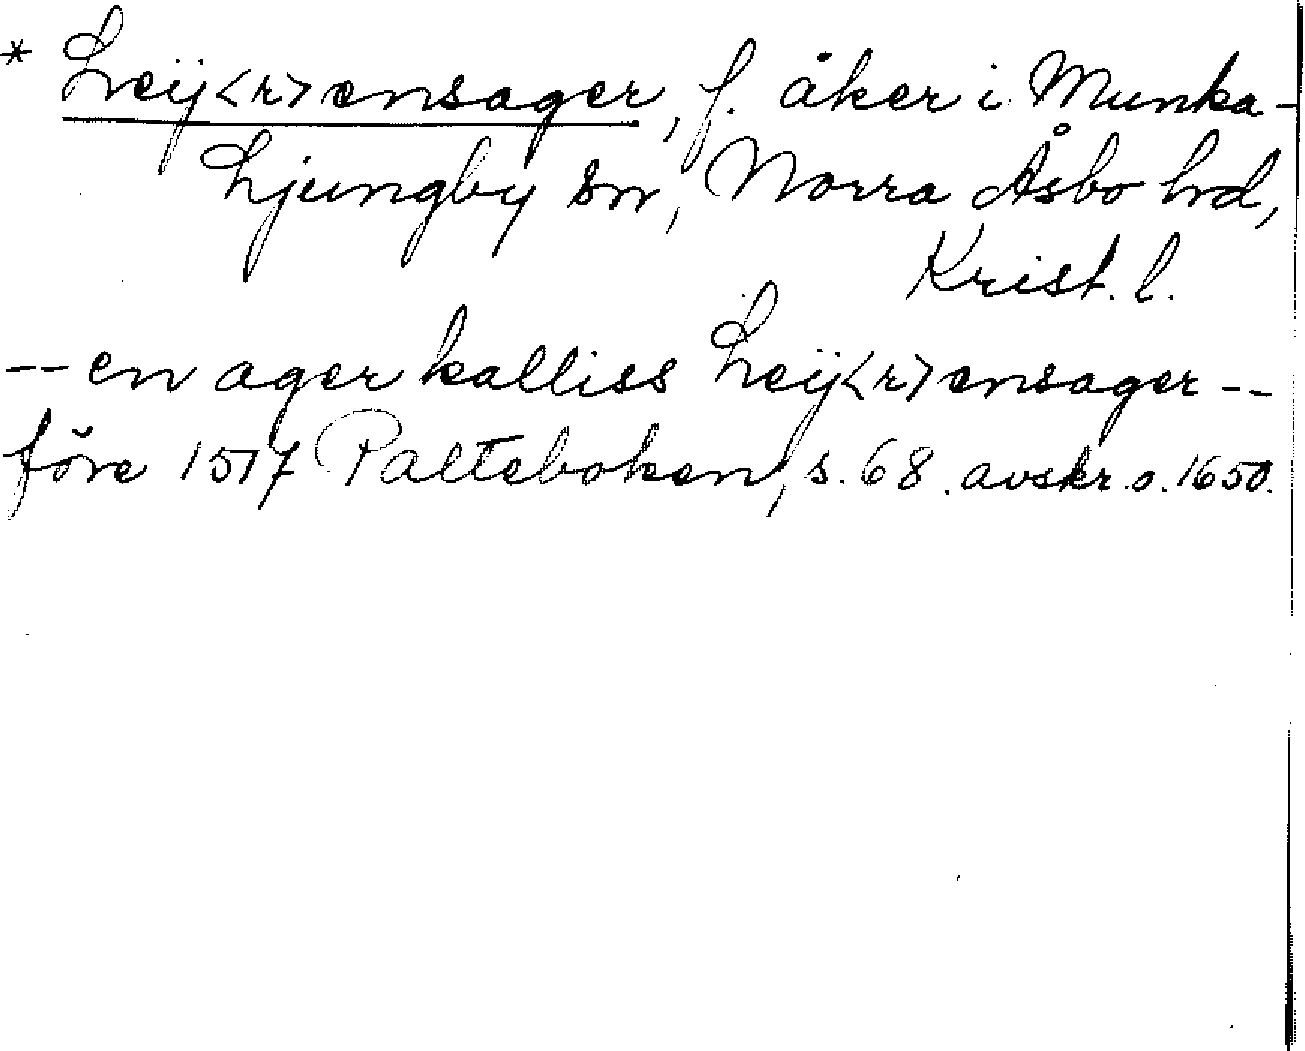 * Leÿ<r>ensager, f. åker i Munka-
Ljungby sn, Norra Åsbo hrd,
Krist. l.
-- en ager kalliss Leÿ<r>ensager --
före 1517 Palteboken, s. 68. avskr. o. 1650.